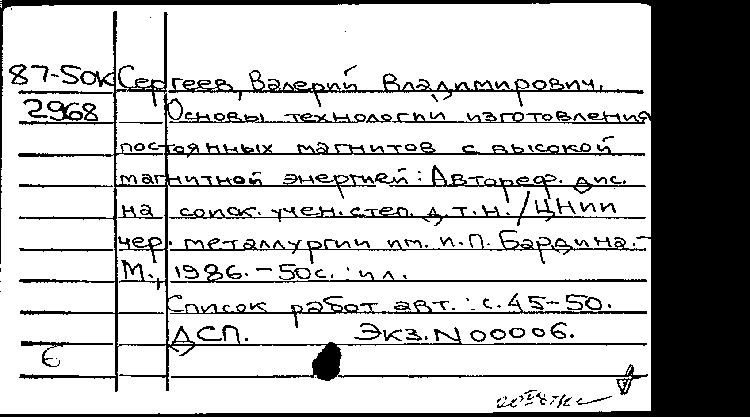 87-50к Сергеев, Валерий Владимирович.
2968 Основы технологий изготовления
постоянных магнитов с высокой
магнитной энергией: Автореф. дис.
на соиск. учен. степ. д.т.н. / ЦНИИ
чер. металлургии им. И.П. Бардина. -
М., 1986. - 50 с. : ил.
Список работ авт.: с. 45-50.
ДСП. Экз. N 00006.
6